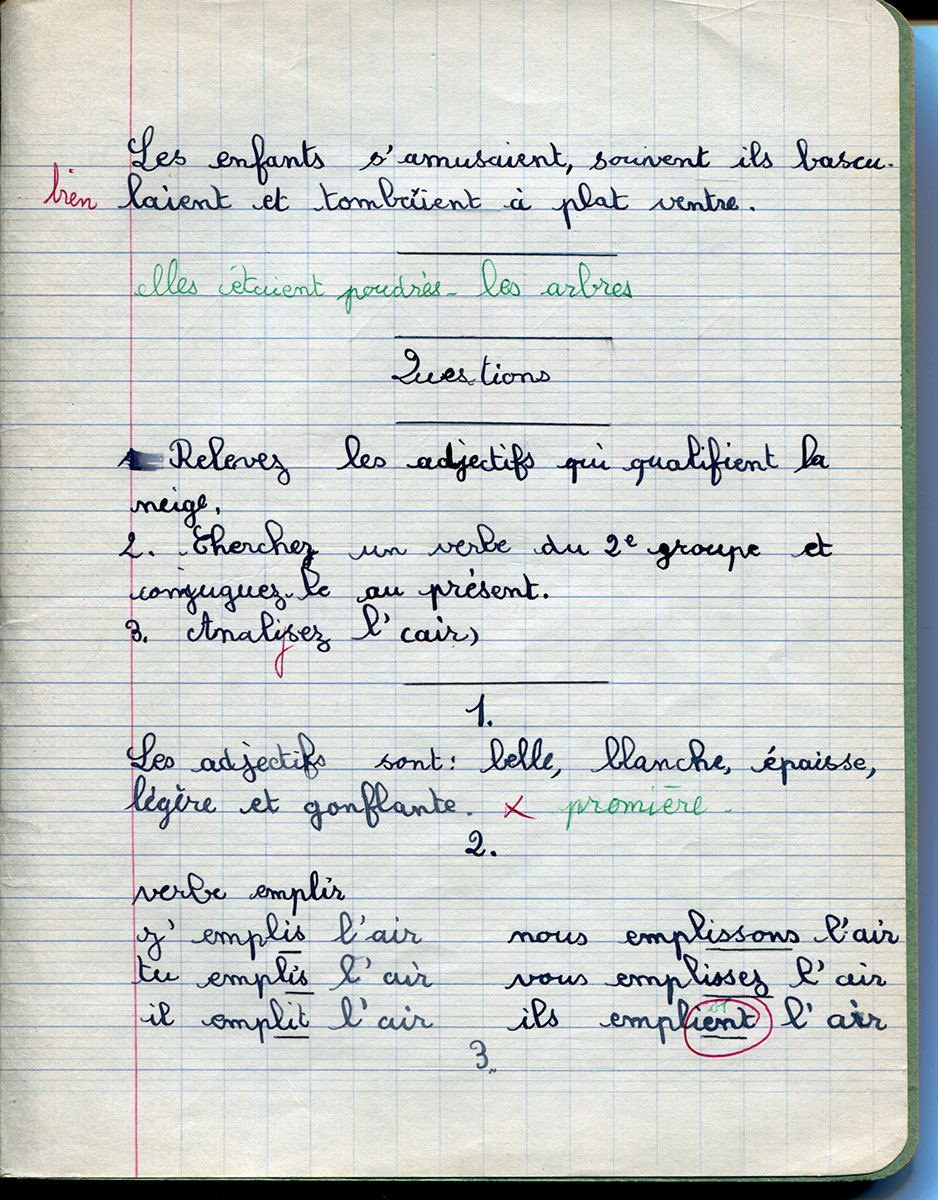 Les enfants s'amusaient, souvent ils bascu-
bien laient et tombaient à plat ventre.
elles étaient poudrés - les arbres
Questions
1 Relevez les adjectifs qui qualifient la
neige.
2. Cherchez un verbe du 2e groupe et
conjuguez-le au présent.
3. Analysez l'air,
1.
Les adjectifs sont : belle, blanche, épaisse,
légère et gonflante. x première -
2.
verbe emplir
j' emplis l'air nous emplissons l'air
tu emplis l'air vous emplissez l'air
il emplit l'air ils emplient l'air
3.